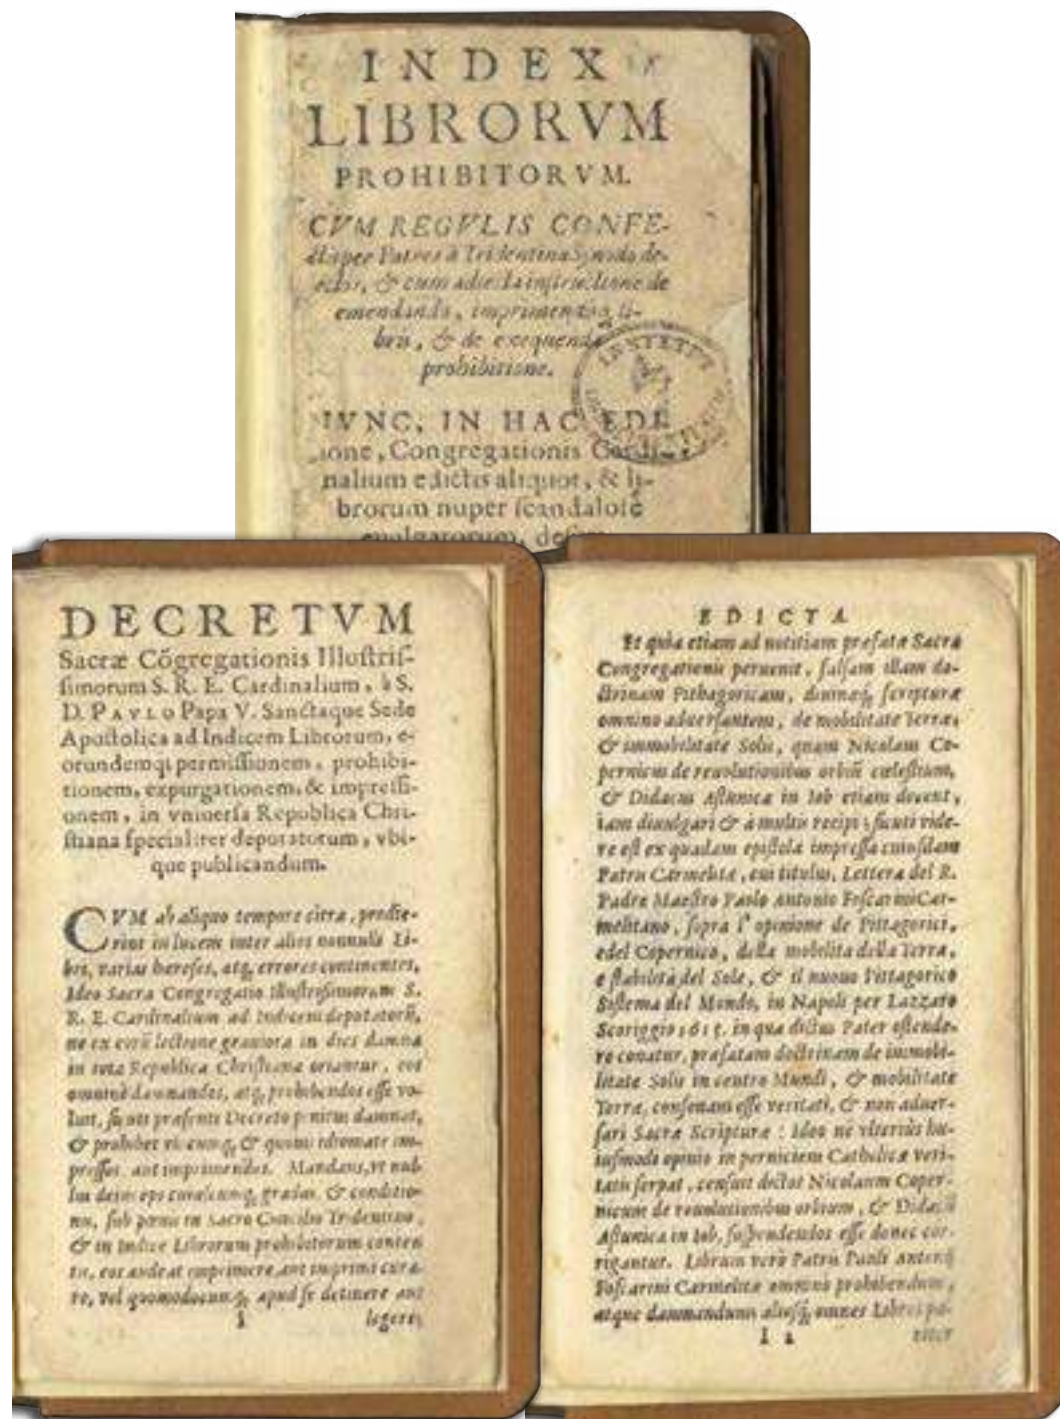 INDEX
LIBRORVM
PROHIBITORVM.
CVM REGVLIS CONFE-
ctis per Patres à Tridentina Synodo de-
lectos, & cum adiecta instructione de
emendandis, imprimendisq; li-
bris, & de exequenda
prohibitione.
NVNC, IN HAC EDI
ione, Congregationis Cardi-
nalium edictis aliquot, & li-
brorum nuper ſcandaloſe
euulgatorum,
DECRETVM
Sacræ Cōgregationis Illuſtriſ-
ſimorum S. R. E. Cardinalium, à S.
D. PAVLO Papa V. Sanctaque Sede
Apoſtolica ad Indicem Librorum, e-
orundemq; permiſſionem, prohibi-
tionem, expurgationem, & impreſſi-
onem, in vniuerſa Republica Chri-
ſtiana ſpecialiter deputatorum, vbi-
que publicandum.
CVM ab aliquo tempore citra, prodie-
rint in lucem inter alios nonnulli Li-
bri, varias hereſes, atq; errores continentes,
Ideo Sacra Congregatio Illuſtriſſimorum S.
R. E. Cardinalium ad Indicem deputatorū,
ne ex eorū lectione grauiora in dies damna
in tota Republica Chriſtiana oriantur, eos
omninò damnandos, atq; prohibendos eſſe vo-
luit, ſicuti præſenti Decreto pœnitus damnat,
& prohibet vbicunq; & quouis idiomate im-
preſſos, aut imprimendos. Mandans, vt nul-
lus deinceps cuiuſcunq; gradus, & conditio-
nis, ſub pœnis in Sacro Concilio Tridentino,
& in Indice Librorum prohibitorum conten
tis, eos audeat imprimere, aut imprimi cura-
re, vel quomodocunq; apud ſe detinere aut
legere;
EDICTA
Et quia etiam ad notitiam præfatæ Sacræ
Congregationis peruenit, falſam illam do-
ctrinam Pithagoricam, diuinæq; ſcripturæ
omnino aduerſantem, de mobilitate Terræ,
& immobilitate Solis, quam Nicolaus Co-
pernicus de reuolutionibus orbiū cœleſtium,
& Didacus Aſtunica in Iob etiam docent,
iam diuulgari & à multis recipi; ſicuti vide-
re eſt ex quadam epiſtola impreſſa cuiuſdam
Patris Carmelitæ, cui titulus, Lettera del R.
Padre Maeſtro Paolo Antonio Foſcarini Car-
melitano, ſopra l' opinione de Pittagorici,
e del Copernico, della mobilita della Terra,
e ſtabilità del Sole, & il nuouo Pittagorico
Siſtema del Mondo, in Napoli per Lazzaro
Scoriggio 1615. in qua dictus Pater oſtende-
re conatur, præfatam doctrinam de immobi-
litate Solis in centro Mundi, & mobilitate
Terræ, conſonam eſſe veritati, & non aduer-
ſari Sacræ Scripturæ: Ideo ne vlterius hu-
iuſmodi opinio in perniciem Catholicæ veri-
tatis ſerpat, cenſuit dictos Nicolaum Coper-
nicum de reuolutionibus orbium, & Didacū
Aſtunica in Iob, ſuſpendendos eſſe donec cor-
rigantur. Librum verò Patris Pauli Antonij
Foſcarini Carmelitæ omninò prohibendum,
atque damnandum; alioſq; omnes Libros pa-
I 2